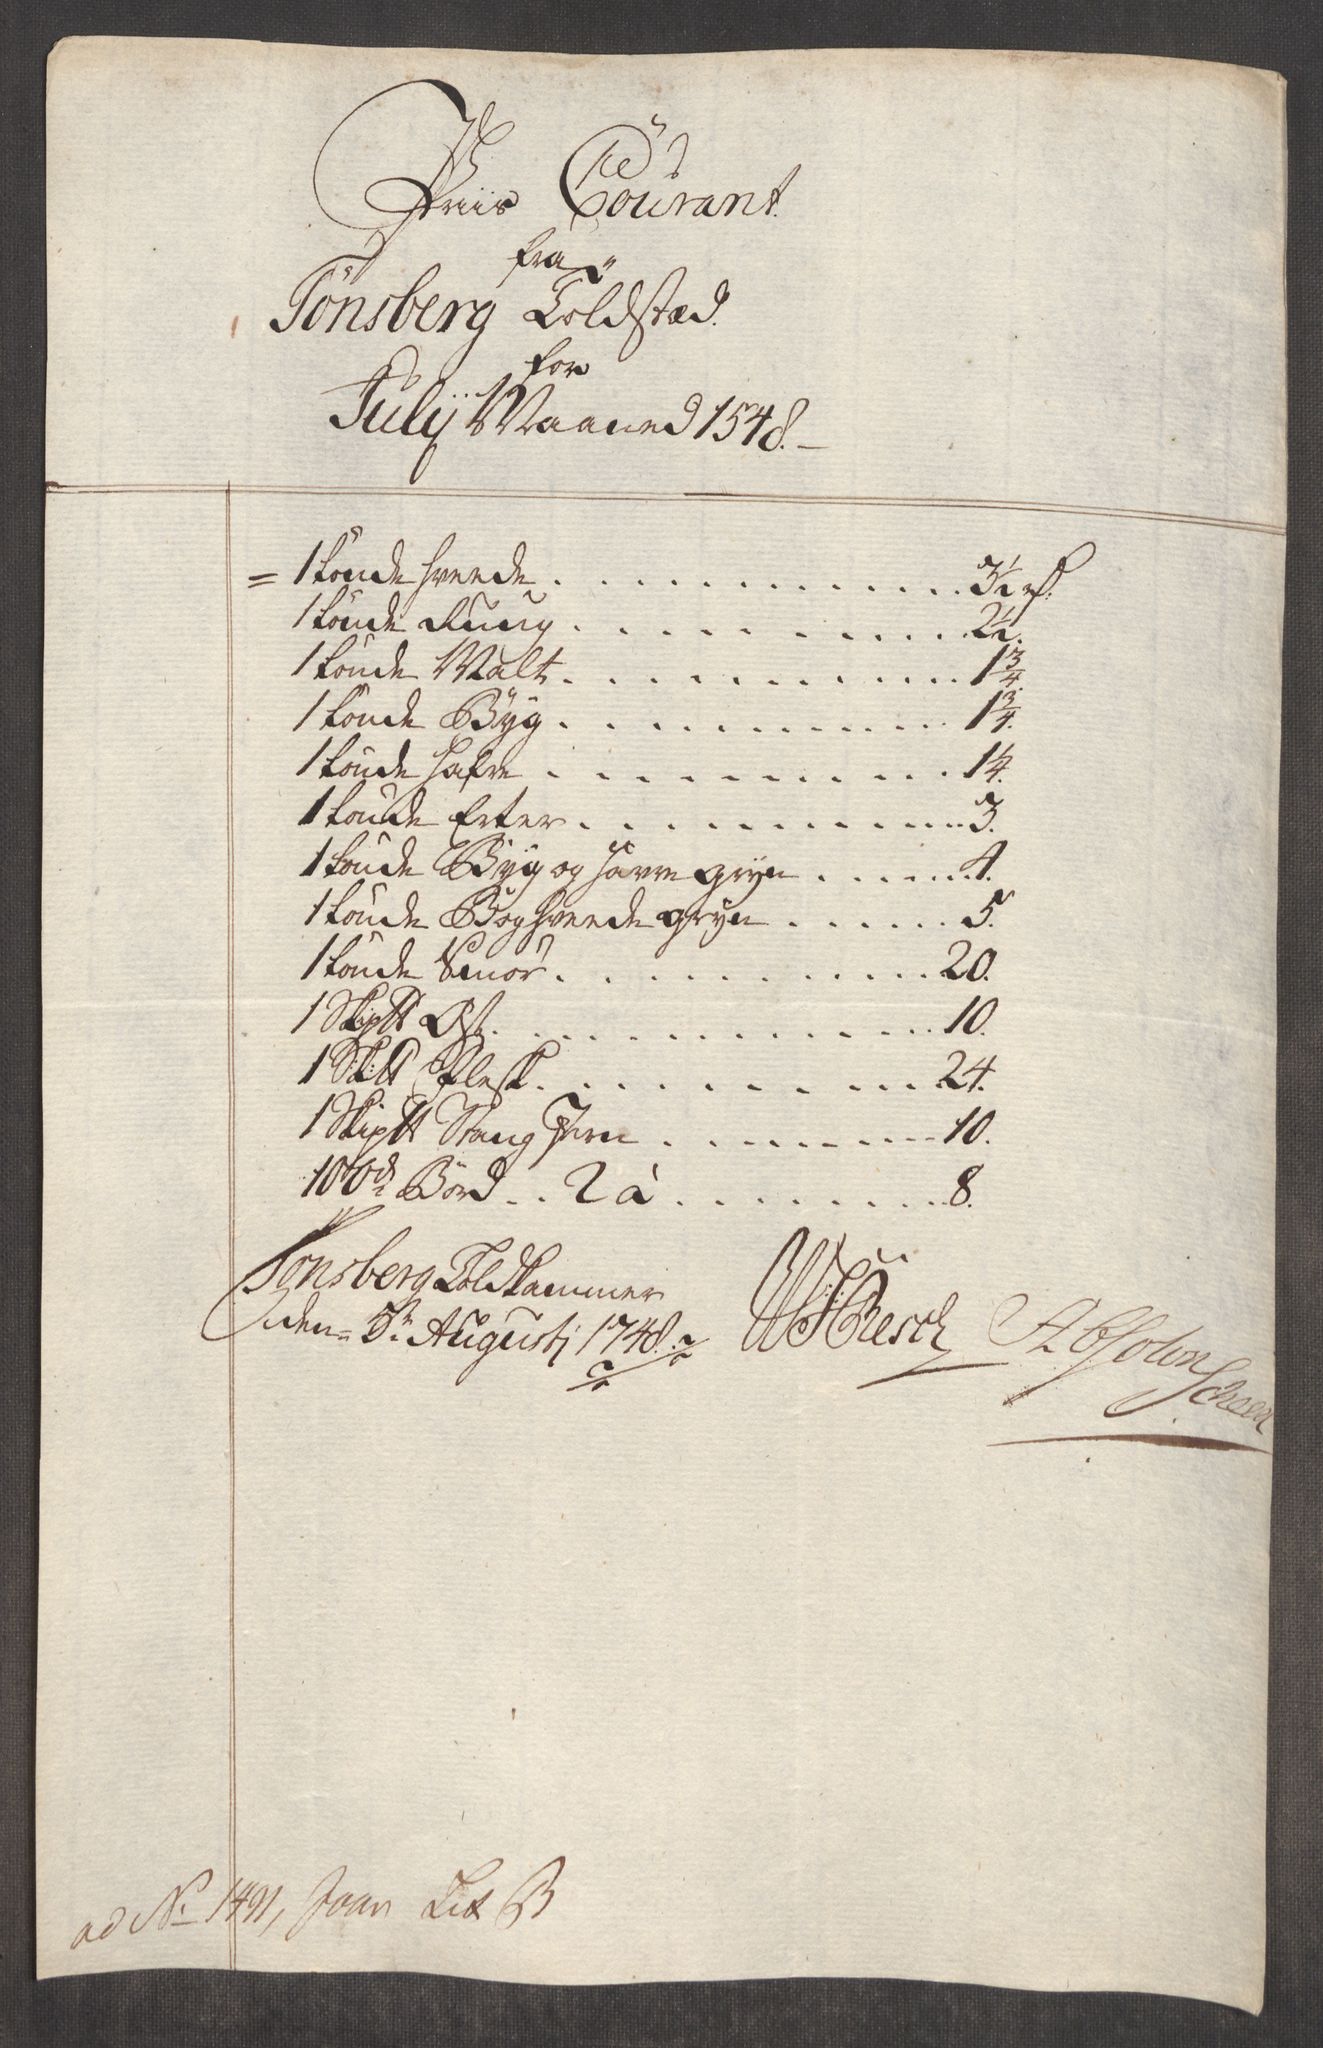 Priis Courant.
fra
Tönsberg Toldstæd.
for
Julij Maaned 1548.
= 1 tönde hveede . . . . . . . . . . . . 3½ rd.
1 tönde Rüug . . . . . . . . . . . 2½.
1 tönde Malt . . . . . . . . . . . 1¾.
1 tönde Byg . . . . . . . . . . . 1¾.
1 tönde hafre . . . . . . . . . . . 1¼.
1 tönde Erter . . . . . . . . . . . 3.
1 tönde Byg og havre gryn . . . . . . 4.
1 tönde Boghveede gryn . . . . . . 5.
1 tönde Smör . . . . . . . . . . . 20.
1 Skip℔ Ost . . . . . . . . . . . 10.
1 Sk℔ Flesk . . . . . . . . . . . 24.
1 Skip℔ Stang Jern . . . . . . . . 10.
100de Bord . . 2 à . . . . . . . . . 8.
Tonsberg Toldkammer
den 5te Augustj 1748.
Resch Absolon Scheen
ad No 1491, Lit B